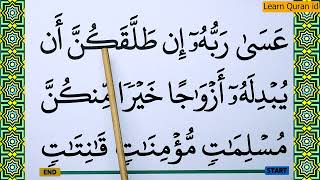 Learn Quran id
عَسَىٰ رَبُّهُۥٓ إِن طَلَّقَكُنَّ أَن
يُبْدِلَهُۥٓ أَزْوَٰجًا خَيْرًا مِّنكُنَّ
مُسْلِمَٰتٍ مُّؤْمِنَٰتٍ قَٰنِتَٰتٍ
END START